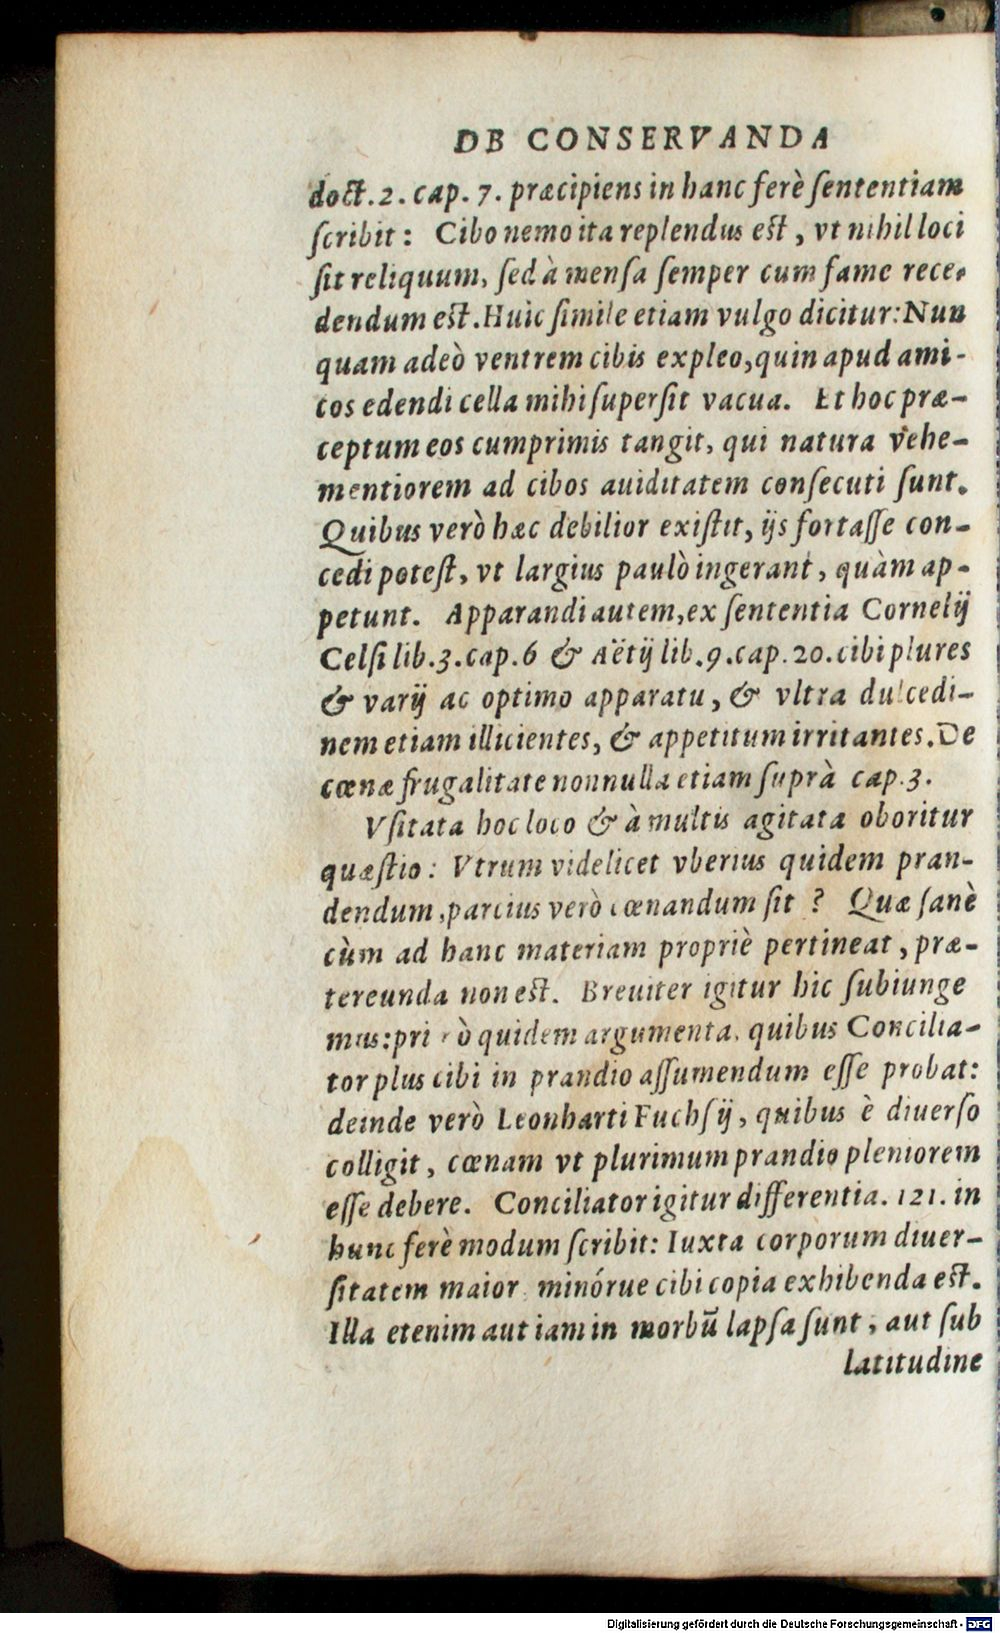 DB CONSERVANDA
doct. 2. cap. 7. præcipiens in hanc ferè ſententiam
ſcribit: Cibo nemo ita replendus eſt, vt nihil loci
ſit reliquum, ſed à menſa ſemper cum fame rece-
dendum eſt. Huic ſimile etiam vulgo dicitur: Nun
quam adeò ventrem cibis expleo, quin apud ami-
cos edendi cella mihi ſuperſit vacua. Et hoc præ-
ceptum eos cumprimis tangit, qui natura vehe-
mentiorem ad cibos auiditatem conſecuti ſunt.
Quibus verò hæc debilior exiſtit, ijs fortaſſe con-
cedi poteſt, vt largius paulò ingerant, quàm ap-
petunt. Apparandi autem, ex ſententia Cornelij
Celſi lib. 3. cap. 6 & Aëtij lib. 9. cap. 20. cibi plures
& varij ac optimo apparatu, & vltra dulcedi-
nem etiam illicientes, & appetitum irritantes. De
cœnæ frugalitate nonnulla etiam ſuprà cap. 3.
Vſitata hoc loco & à multis agitata oboritur
quæſtio: Vtrum videlicet vberius quidem pran-
dendum, parcius verò cœnandum ſit? Quæ ſanè
cùm ad hanc materiam propriè pertineat, præ-
tereunda non eſt. Breuiter igitur hic ſubiunge
mus: pri ò quidem argumenta, quibus Concilia-
tor plus cibi in prandio aſſumendum eſſe probat:
deinde verò Leonharti Fuchſij, quibus è diuerſo
colligit, cœnam vt plurimum prandio pleniorem
eſſe debere. Conciliator igitur differentia. 121. in
hunc ferè modum ſcribit: Iuxta corporum diuer-
ſitatem maior minórue cibi copia exhibenda eſt.
Illa etenim aut iam in morbū lapſa ſunt, aut ſub
latitudine
Digitalisierung gefördert durch die Deutsche Forschungsgemeinschaft - DFG